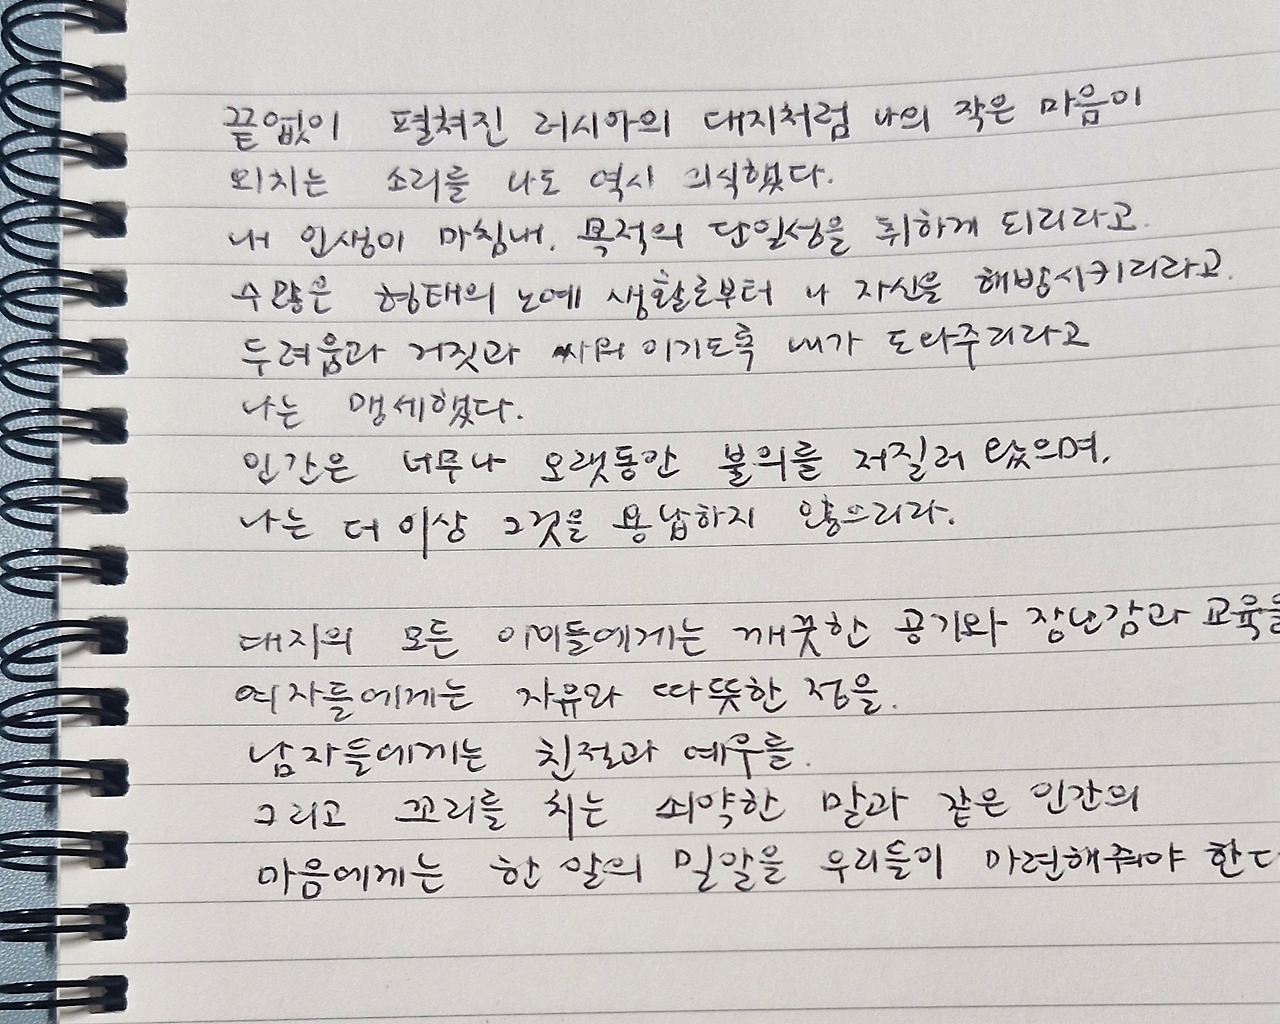 끝없이 펼쳐진 러시아의 대지처럼 나의 작은 마음이
외치는 소리를 나도 역시 의식했다.
내 인생이 마침내, 목적의 단일성을 취하게 되리라고.
수많은 형태의 노예 생활로부터 나 자신을 해방시키리라고.
두려움과 거짓과 싸워 이기도록 내가 도와주리라고
나는 맹세했다.
인간은 너무나 오랫동안 불의를 저질러 왔으며,
나는 더 이상 그것을 용납하지 않으리라.
대지의 모든 아이들에게는 깨끗한 공기와 장난감과 교육을
여자들에게는 자유와 따뜻한 정을.
남자들에게는 친절과 예우를.
그리고 꼬리를 치는 쇠약한 말과 같은 인간의
마음에게는 한 알의 밀알을 우리들이 마련해줘야 한다